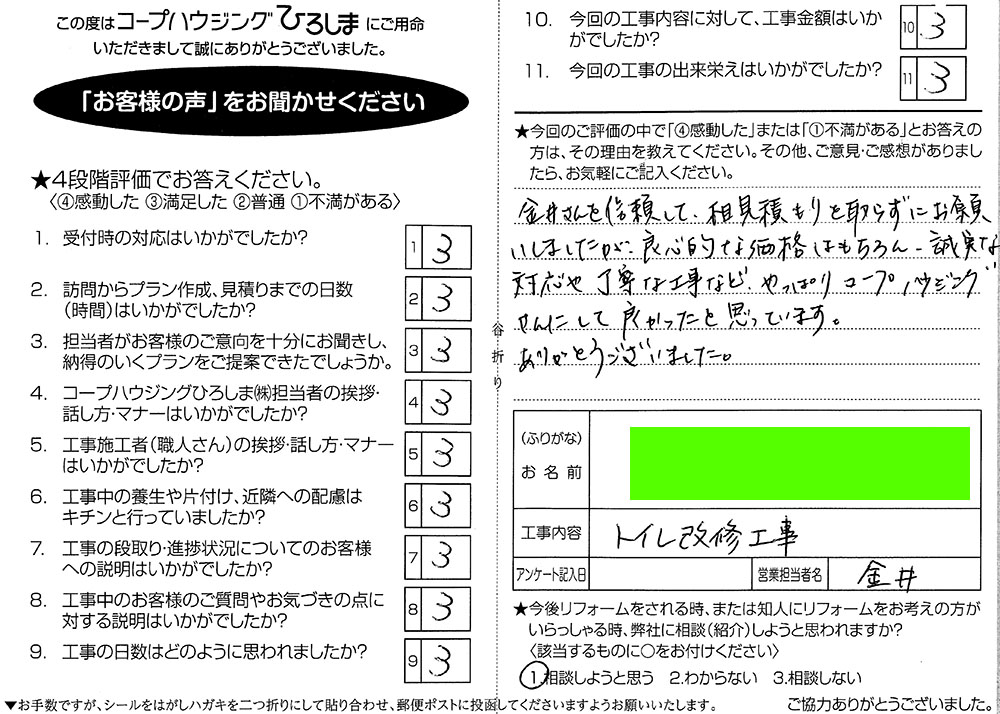 この度はコープハウジングひろしまにご用命
いただきまして誠にありがとうございました。
「お客様の声」をお聞かせください
★4段階評価でお答えください。
〈④感動した ③満足した ②普通 ①不満がある〉
1. 受付時の対応はいかがでしたか?
1 3
2. 訪問からプラン作成、見積りまでの日数
(時間)はいかがでしたか?
2 3
3. 担当者がお客様のご意向を十分にお聞きし、
納得のいくプランをご提案できたでしょうか。
3 3
4. コープハウジングひろしま㈱担当者の挨拶・
話し方・マナーはいかがでしたか?
4 3
5. 工事施工者(職人さん)の挨拶・話し方・マナー
はいかがでしたか?
5 3
6. 工事中の養生や片付け、近隣への配慮は
キチンと行っていましたか?
6 3
7. 工事の段取り・進捗状況についてのお客様
への説明はいかがでしたか?
7 3
8. 工事中のお客様のご質問やお気づきの点に
対する説明はいかがでしたか?
8 3
9. 工事の日数はどのように思われましたか?
9 3
谷折り
10. 今回の工事内容に対して、工事金額はいか
がでしたか?
10 3
11. 今回の工事の出来栄えはいかがでしたか?
11 3
★今回のご評価の中で「④感動した」または「①不満がある」とお答えの
方は、その理由を教えてください。その他、ご意見・ご感想がありまし
たら、お気軽にご記入ください。
金井さんを信頼して、相見積もりを取らずにお願
いしましたが、良心的な価格はもちろん、誠実な
対応や丁寧な工事など、やっぱりコープハウジング
さんにして良かったと思っています。
ありがとうございました。
(ふりがな)
お名前
工事内容 トイレ改修工事
アンケート記入日 営業担当者名 金井
★今後リフォームをされる時、または知人にリフォームをお考えの方が
いらっしゃる時、弊社に相談(紹介)しようと思われますか?
〈該当するものに○をお付けください〉
1.相談しようと思う 2.わからない 3.相談しない
▼お手数ですが、シールをはがしハガキを二つ折りにして貼り合わせ、郵便ポストに投函してくださいますようお願いいたします。
ご協力ありがとうございました。